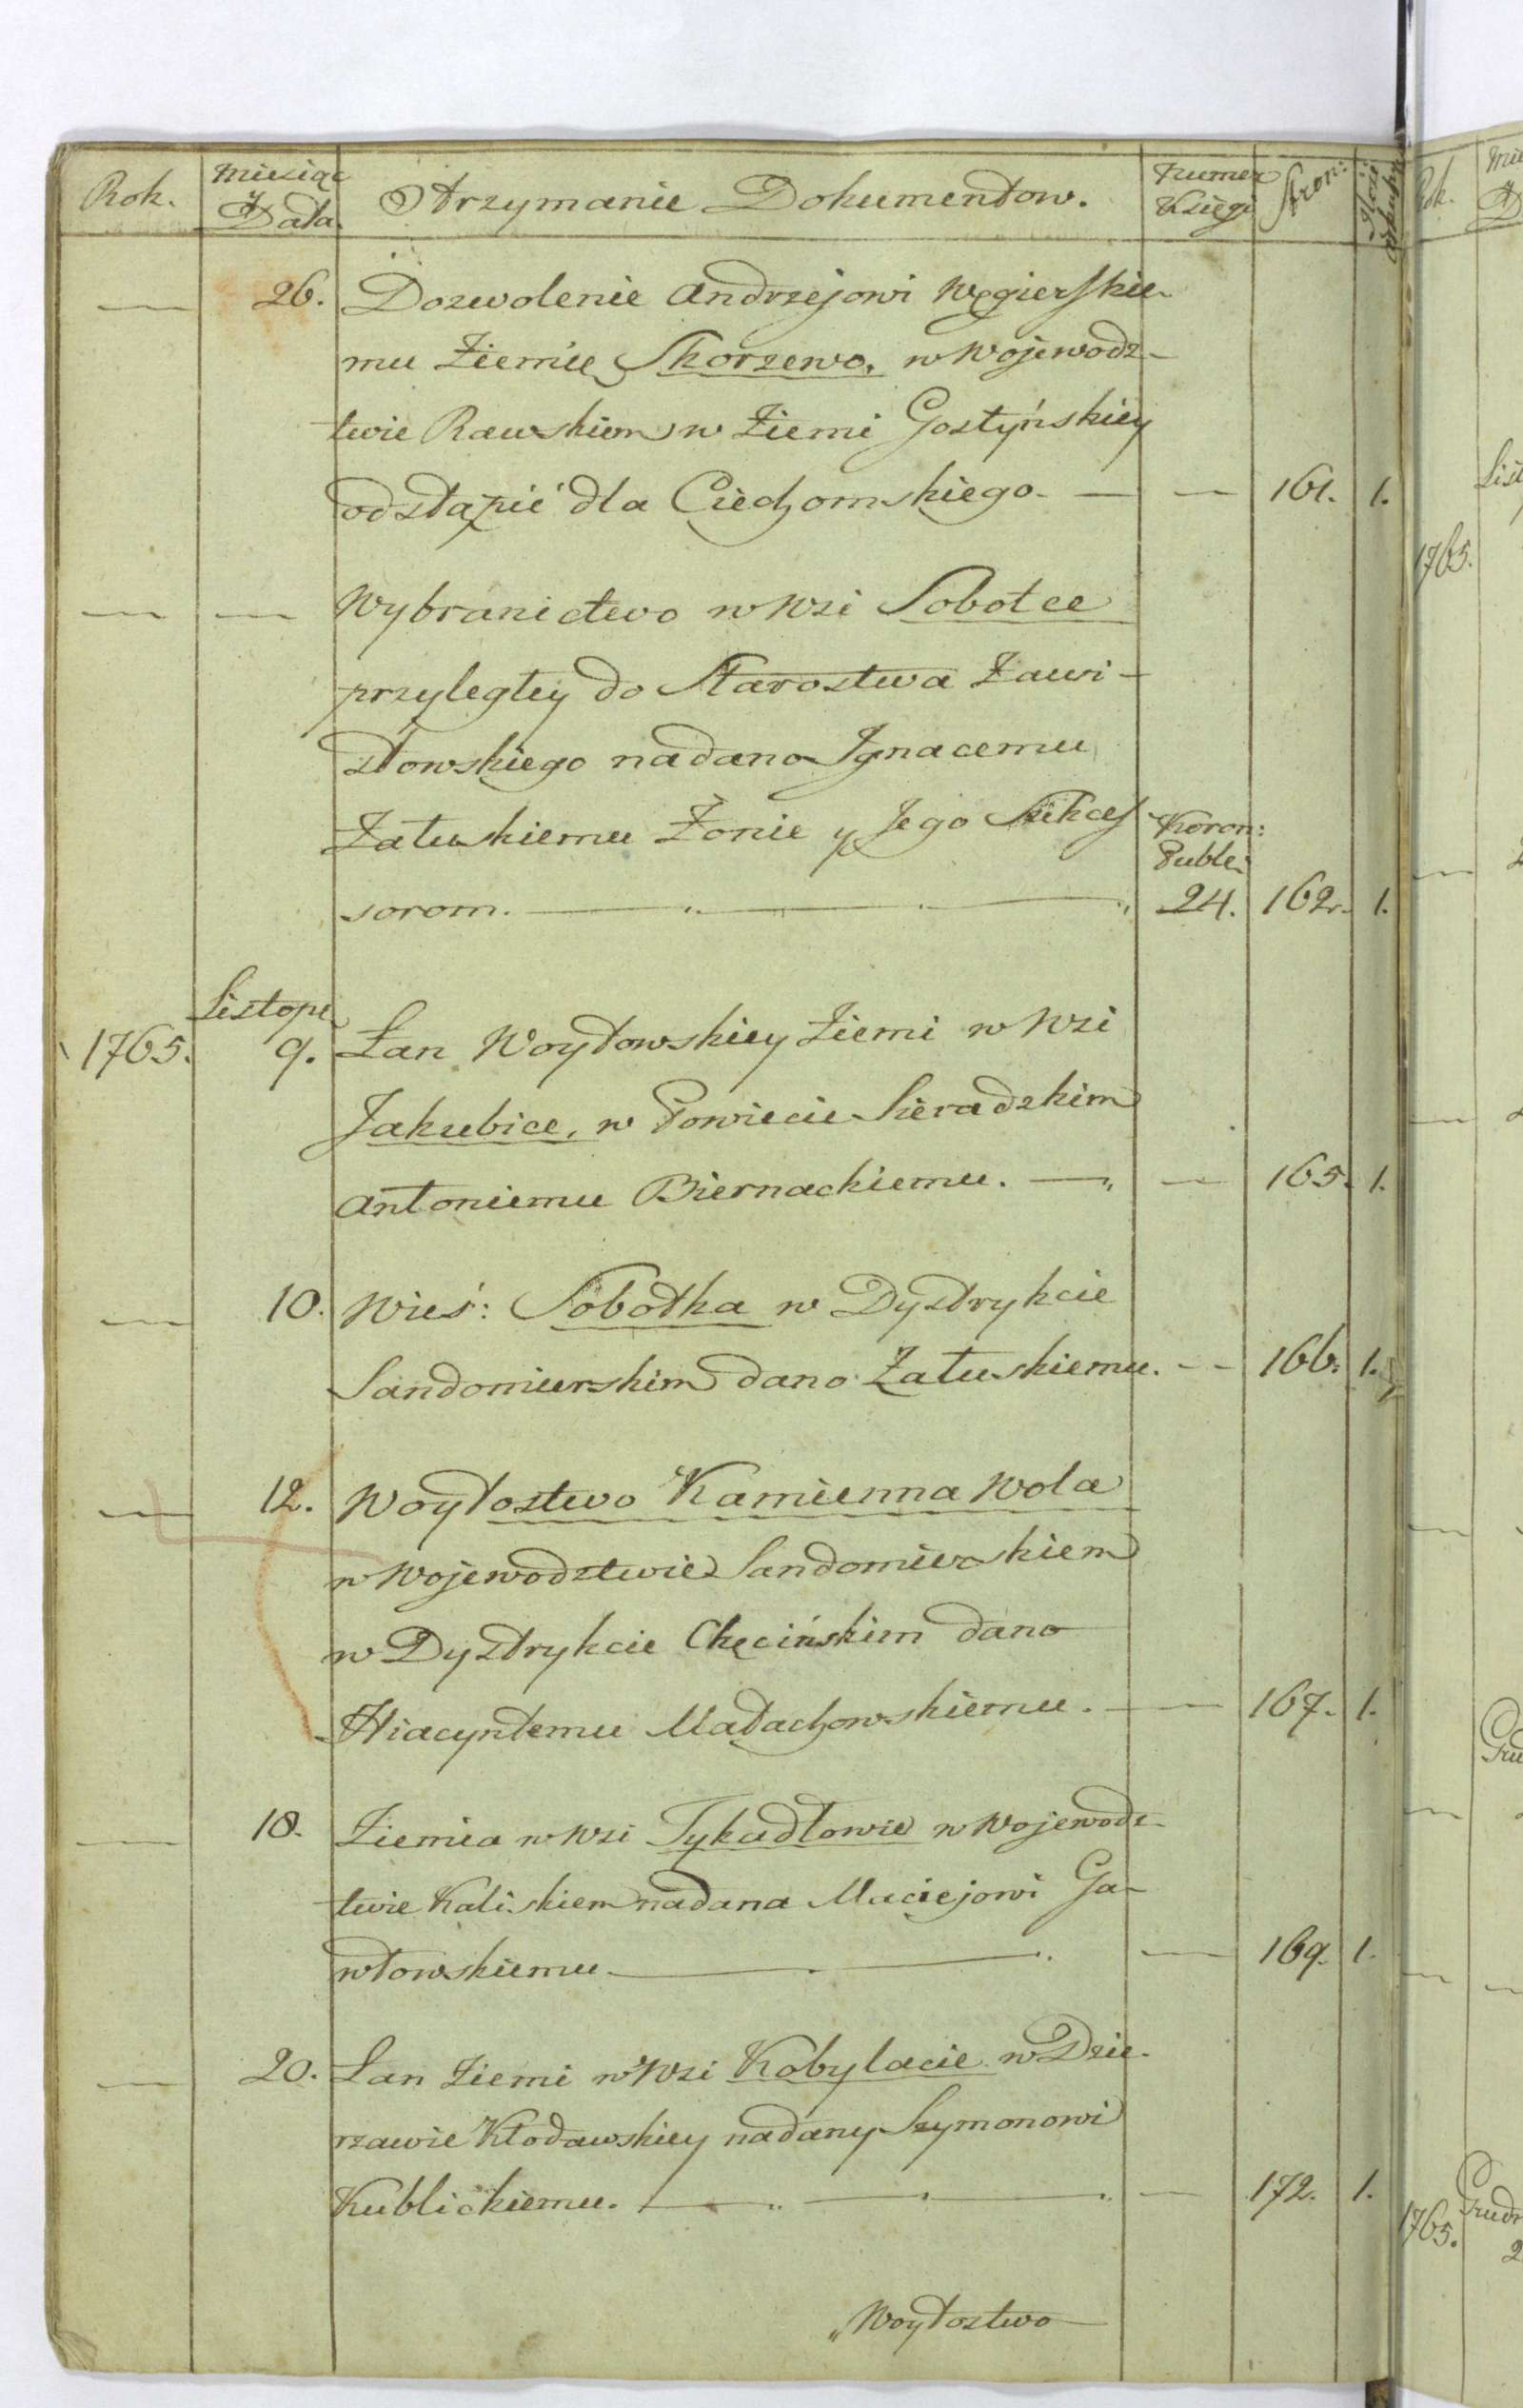 Rok. Miesiąc y Data. Otrzymanie Dokumentow. Numer Księgi Stron:
— 26. Dozwolenie Andrzejowi Węgierskie-
mu Ziemię Skorzewo, w Wojewodz-
twie Rawskiem w Ziemi Gostyńskiey
odstąpić dla Ciechomskiego. — — 161. 1.
— — Wybranictwo w Wsi Sobotce
przyległey do Starostwa Zawi-
stowskiego nadano Ignacemu
Załuskiemu Żonie y Jego Sukces Koron:
Publ:
sorom. — 24. 162. 1.
Listop.
1765. 9. Łan Woytowskiey Ziemi w Wsi
Jakubice, w Powiecie Sieradzkim
Antoniemu Biernackiemu. — — 165. 1.
— 10. Wieś: Sobotka w Dystrykcie
Sandomierskim dano Załuskiemu. — 166. 1.
— 12. Woytostwo Kamienna Wola
w Wojewodztwie Sandomierskiem
w Dystrykcie Chęcińskim dano
Hiacyntemu Małachowskiemu. — 167. 1.
— 18. Ziemia w Wsi Tykadłowie w Wojewodz-
twie Kaliskiem nadana Maciejowi Ga-
włowskiemu — — 169. 1.
— 20. Łan Ziemi w Wsi Kobylacie w Dzie-
rzawie Kłodawskiey nadany Szymonowi
Kublickiemu. — — 172. 1.
Woytostwo
1765.
1765.